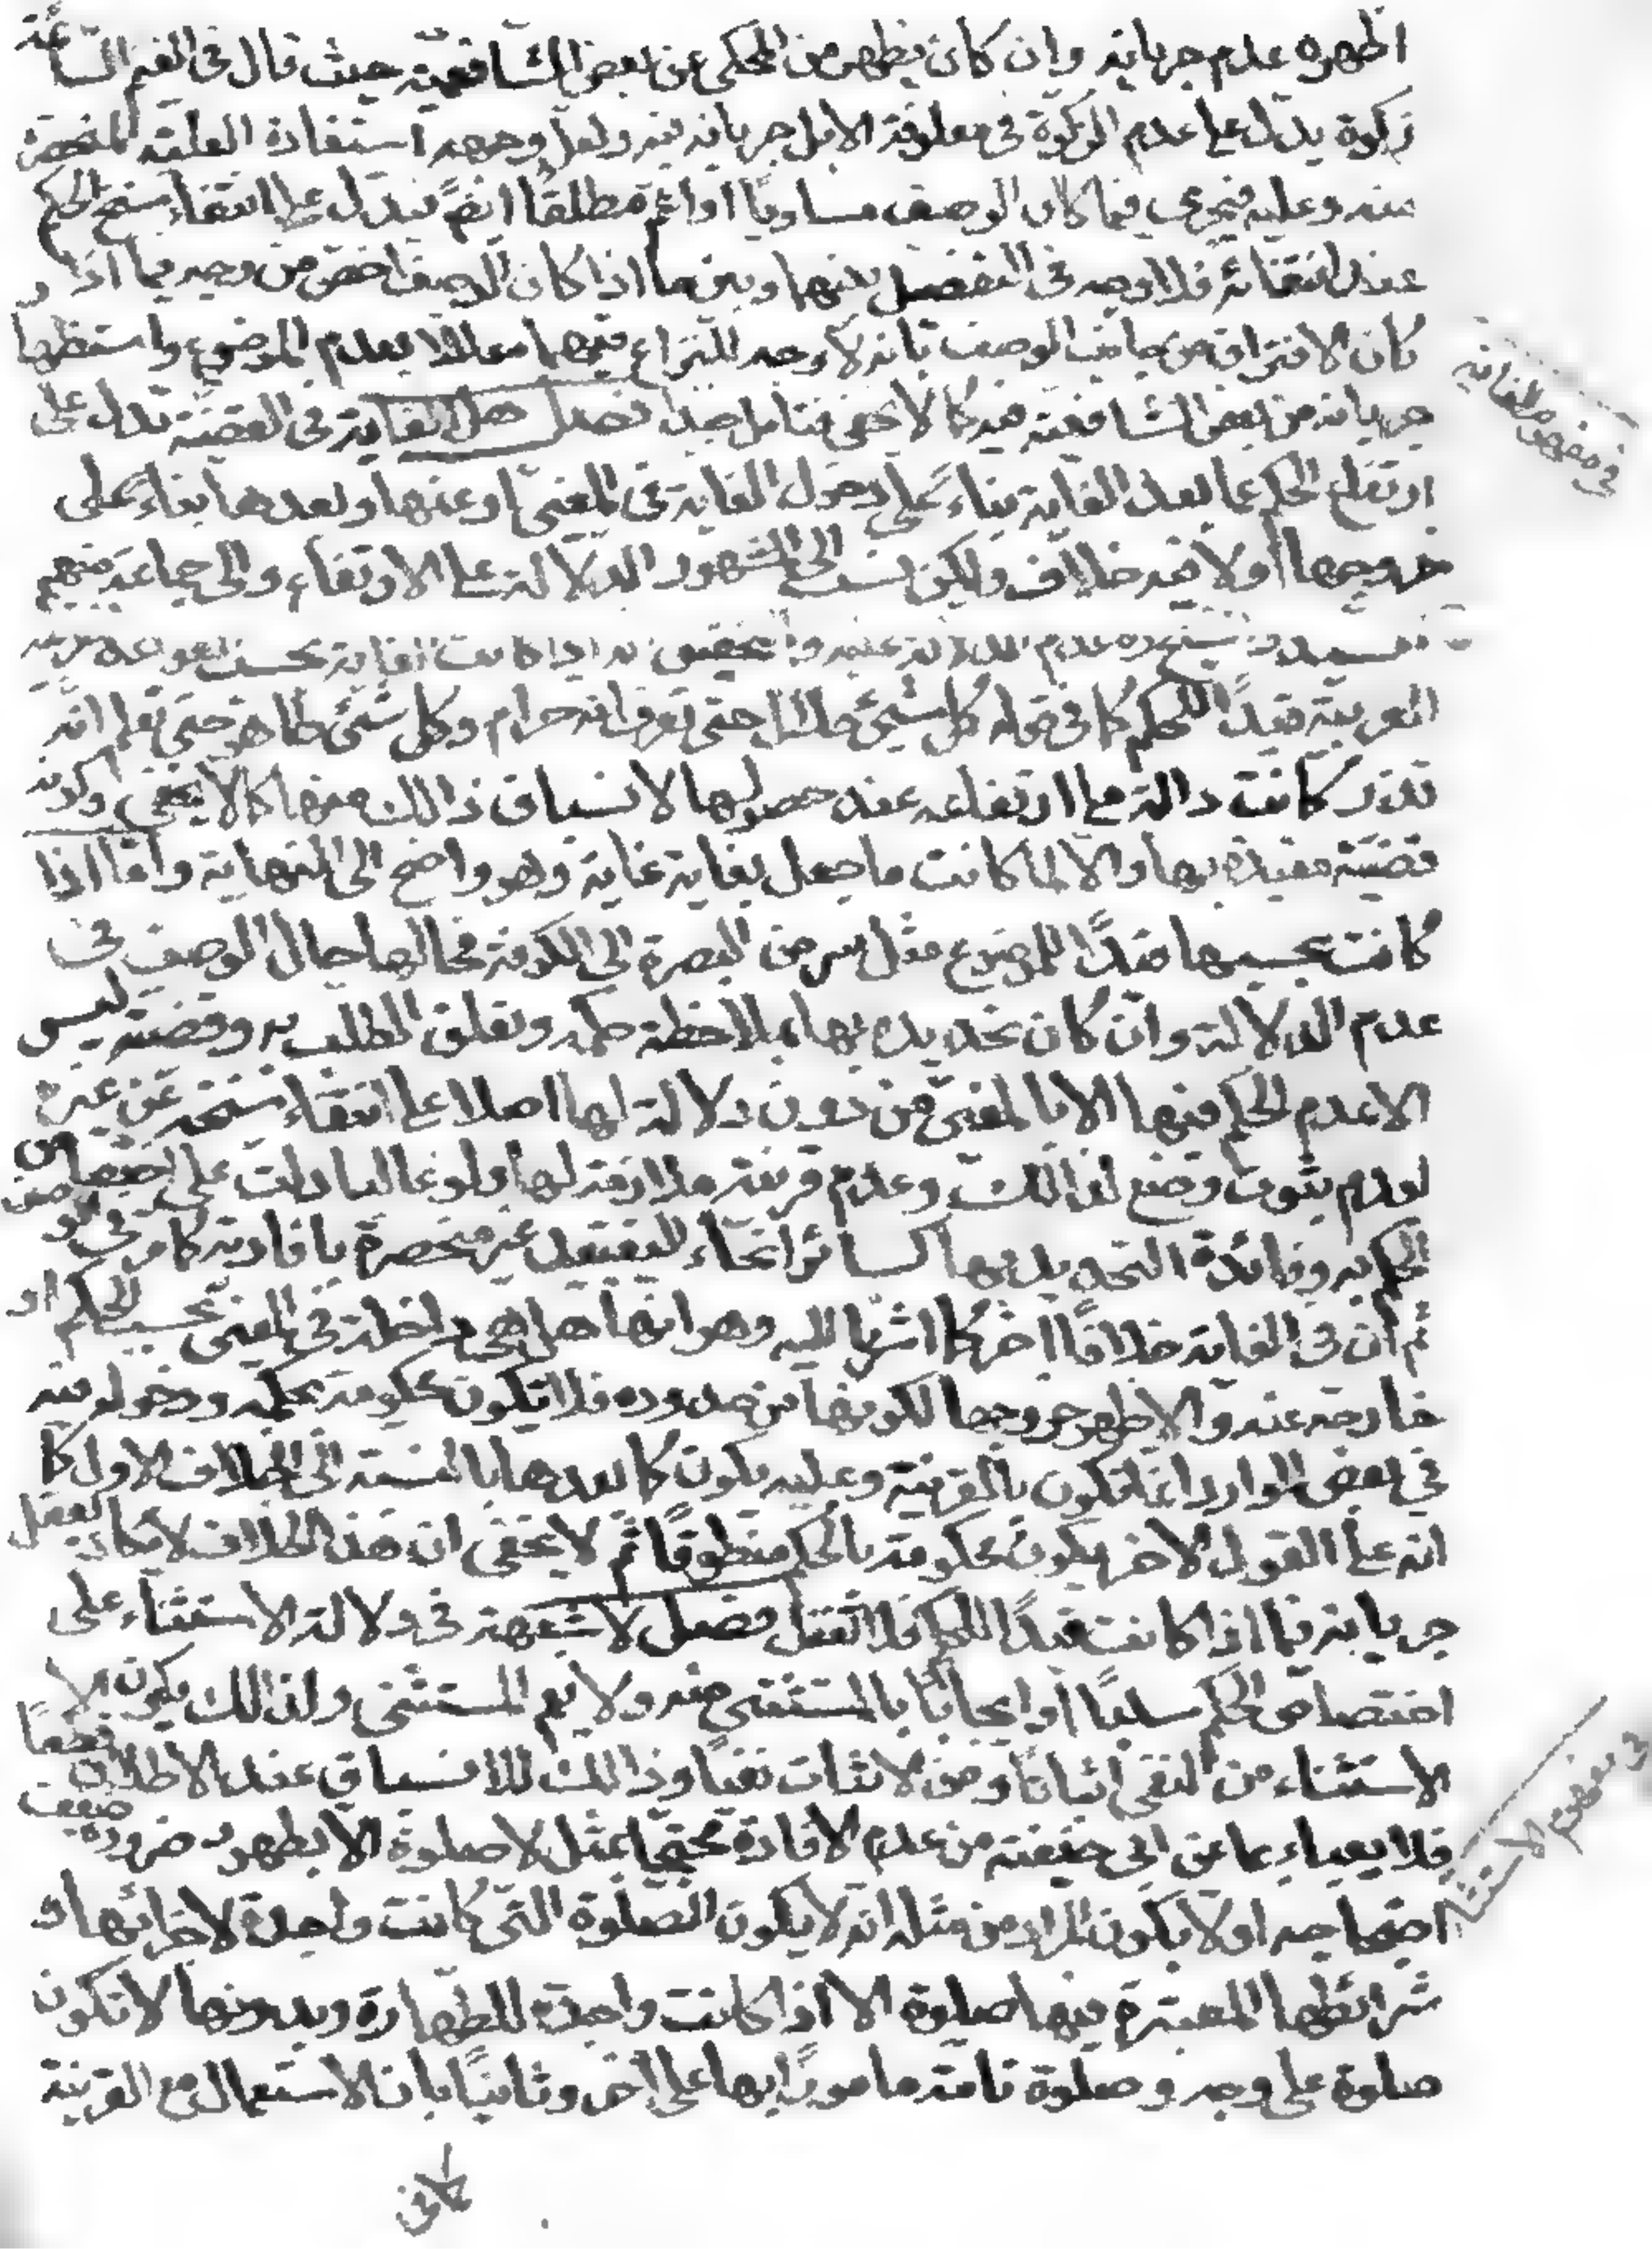 اظهره عدم جريانه وان كان يظهر من المحكى عن بعض الشافعية حيث قال فى الغنم السائمة
زكوة يدل على عدم الزكوة فى معلوفة الابل جريانه فيه ولعل وجهه استفادة العلية المنحصرة
منه وعليه فيجرى فيما كان الوصف مساويًا او اعم مطلقًا ايضً فيدل على انتفاء سنخ الحكم
عند انتفائه فلا وجه فى التفصيل بينهما وبين ما اذا كان الوصف اخص من وجه فيما اذا
كان الافتراق من جانب الوصف بانه لا وجه للنزاع فيهما معللا بعدم الموضوع واستظهار
جريانه من بعض الشافعية فيه كما لا يخفى فتامل جيدا فصل هل الغاية فى القضية تدل على
ارتفاع الحكم عما بعد الغاية بناء على دخول الغاية فى المغيى او عنها وبعدها بناء على
خروجها أو لا فيه خلاف ولكن نسب الى المشهور الدلالة على الارتفاع والى جماعة منهم
السيد و الشيخ ره عدم الدلالة عليه والتحقيق انه اذا كانت الغاية بحسب القواعد
العربية قيدًا للحكم كما فى قوله كل شيئ حلال حتى تعرف انه حرام وكل شئ طاهر حتى تعلم انه
قذر كانت دالة على ارتفاعه عند حصولها لانسباق ذالك منها كما لا يخفى وكونه
قضية تقييده بها والا لما كانت ما جعل بغاية غاية وهو واضح الى النهاية وامّا اذا
كانت بحسبها قيدًا للموضوع مثل سر من البصرة الى الكوفة فحالها حال الوصف فى
عدم الدلالة وان كان تحديده بها بملاحظة حكمه وتعلق الطلب به وقضيته ليس
الا عدم الحكم فيها الا بالمغيى من دون دلالة لها اصلا على انتفاء سنخه عن غيره
لعدم ثبوت وضع لذالك وعدم قرينة ملازمة لها ولو غالبا دلت على اختصاص
الحكم به وفائدة التحديد بها كسائر انحاء التقييد غير منحصرة بافادته كما مر فى الوصف
ثم ان فى الغاية خلافًا اخر كما اشرنا اليه وهو انها هل هى داخلة فى المغيى بحسب الحكم او
خارجة عنه والاظهر خروجها لكونها من حدوده فلا تكون محكومة بحكمه ودخوله فيه
فى بعض الموارد انما تكون بالقرينة وعليه يكون كما بعدها بالنسبة الى الخلاف الاول كما
انه على القول الاخر يكون محكومة بالحكم منطوقًا ثم لا يخفى ان هذا الخلاف لا يكاد يعقل
جريانه فيما اذا كانت قيدًا للحكم فلا تغفل فصل لا شبهة فى دلالة الاستثناء على
اختصاص الحكم سلبًا أو ايجابًا بالمستثنى منه ولا يعم المستثنى ولذالك يكون
الاستثناء من النفى اثباتًا ومن الاثبات نفيًا وذالك للانسباق عند الاطلاق قطعًا
فلا يعباء بما عن ابى حنيفة من عدم الافادة محتجًا بمثل لا صلوة الا بطهور ضرورة ضعف
احتجاجه اولا بكون المراد من مثله انه لا يكون الصلوة التى كانت واجدة لاجزائها و
شرائطها المعتبرة فيها صلوة الا اذا كانت واجدة للطهارة وبدونها لا تكون
صلوة على وجه وصلوة تامة مامورًا بها على اخر وثانيًا بان الاستعمال مع القرينة
فى مفهوم الغاية
فى مفهوم الاستثناء